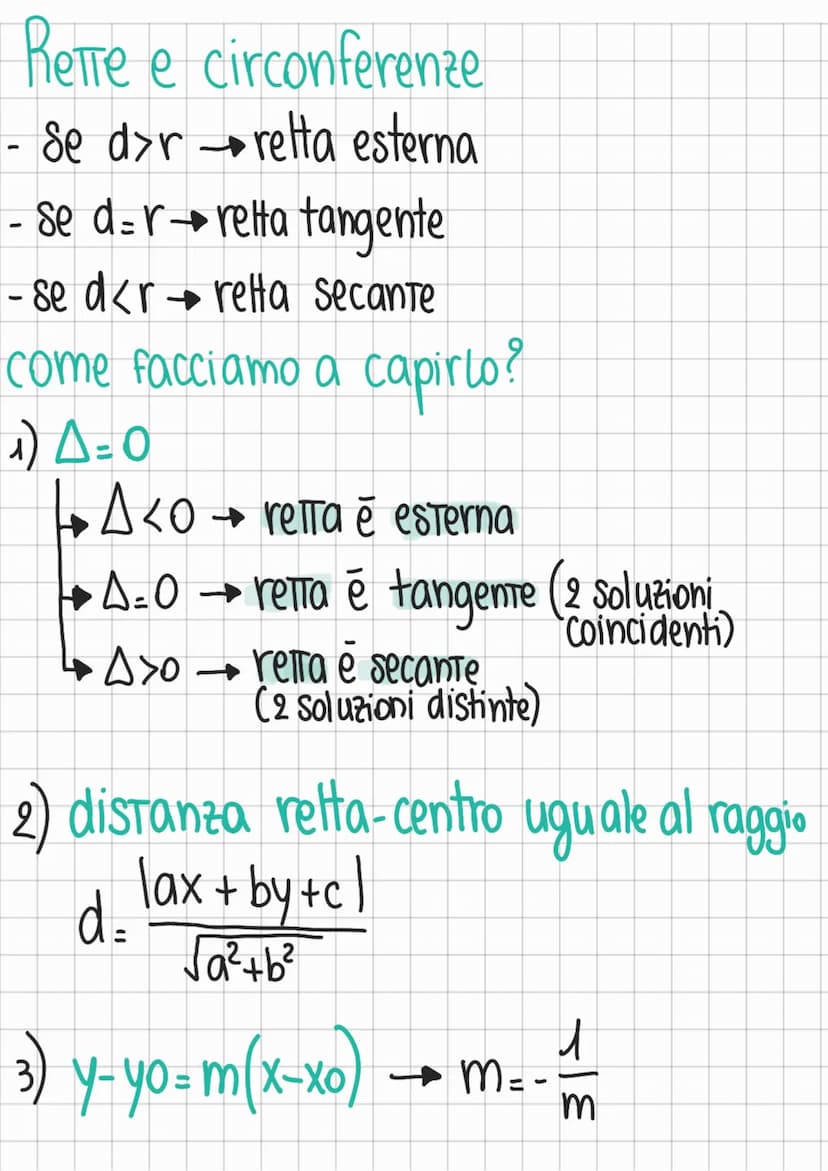 Rette e circonferenze
- se d>r → retta esterna
- se d=r → retta tangente
- se d<r → retta secante
come facciamo a capirlo?
1) Δ=0
Δ<0 → retta ē esterna
Δ=0 → retta ē tangente (2 soluzioni
coincidenti)
Δ>0 → retta ē secante
(2 soluzioni distinte)
2) distanza retta-centro uguale al raggio
d= |ax+by+c| / √a²+b²
3) y-y0=m(x-x0) → m=-1/m